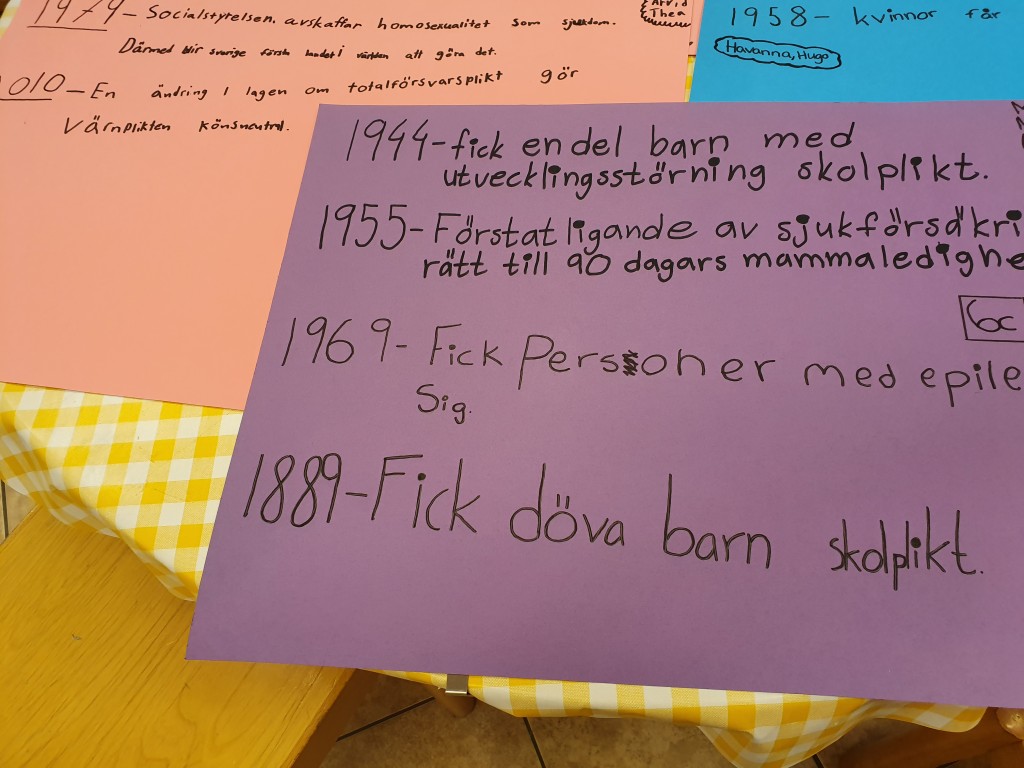 1979 – Socialstyrelsen. avskaffar homosexualitet som sjukdom.
Därmed blir sverige första landet i världen att göra det.
010 – En ändring i lagen om totalförsvarsplikt gör
Värnplikten könsneutral.
Arvid
Thea
1958 – kvinnor får
Havanna, Hugo
1944 – fick en del barn med
utvecklingsstörning skolplikt.
1955 – Förstatligande av sjukförsäkri
rätt till 90 dagars mammaledighe
6c
1969 – Fick Personer med epile
Sig.
1889 – Fick döva barn skolplikt.